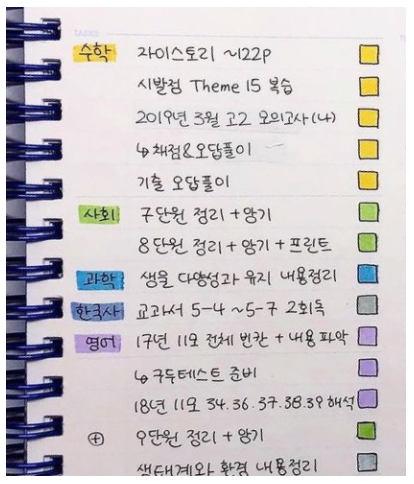 TASKS
수학 자이스토리 ~122p
시발점 Theme 15 복습
2019년 3월 고2 모의고사(나)
↳ 채점&오답풀이
기출 오답풀이
사회 7단원 정리 + 암기
8단원 정리 + 암기 + 프린트
과학 생물 다양성과 유지 내용정리
한국사 교과서 5-4 ~ 5-7 2회독
영어 17년 11모 전체 빈칸 + 내용 파악
↳ 구두테스트 준비
18년 11모 34.36.37.38.39 해석
⊕ 9단원 정리 + 암기
생태계와 환경 내용정리